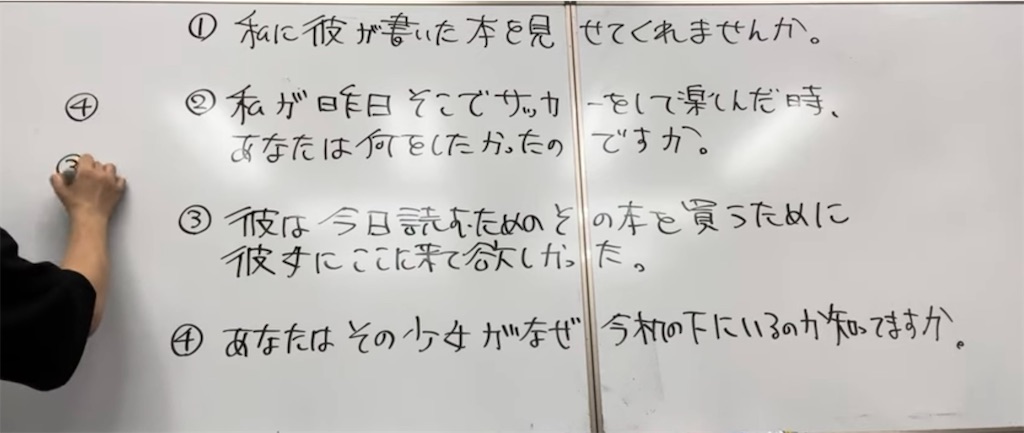 ① 私に彼が書いた本を見せてくれませんか。
② 私が昨日そこでサッカーをして楽しんだ時、
あなたは何をしたかったのですか。
③ 彼は今日読むためのその本を買うために
彼女にここに来て欲しかった。
④ あなたはその少女がなぜ今机の下にいるのか知ってますか。
④
③